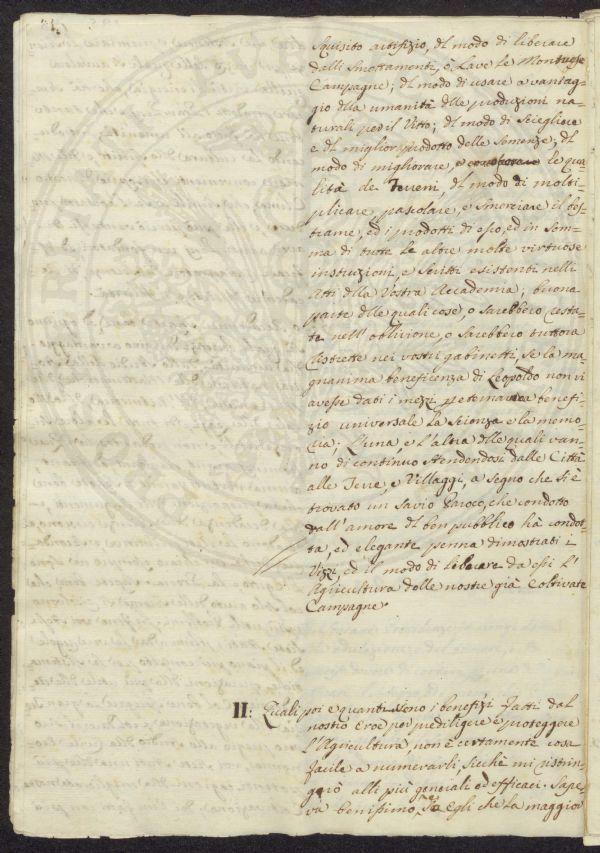 squisito artifizio, del modo di liberare
dalli Smottamenti, ò Lave le Montuose
Campagne; del modo di usare a vantag-
gio della umanità delle produzioni na-
turali ped il Vitto; del modo di Sciegliere
e di miglior prodotto delle Semenze; del
modo di migliorare, le qua-
lità de Terreni, del modo di molti-
plicare, pascolare, e smerciare il be-
stiame, ed i prodotti di esso, ed in som-
ma di tutte le altre molte virtuose
instruzioni, e Scritti esistenti nelli
Atti della Vostra Accademia; buona
parte delle quali cose, o sarebbero resta-
te nell' oblivione, o sarebbero tuttora
ristrette nei vostri gabinetti, se la ma-
gnanima beneficenza di Leopoldo non vi
avesse dati i mezzi, pe benefi-
zio universale la Scienza e la memo-
ria; L'una e l'altra delle quali van-
no di continuo stendendosi dalle Città
alle Terre, e Villaggi, a segno che si è
trovato un Savio Paroco, che condotto
dall' amore del ben pubblico hà con dot-
ta, ed elegante penna dimostrati i
Vizzi, ed il modo di liberare da essi L'
Agricultura delle nostre già Coltivate
Campagne.
II: Quali poi e quanti sono i benefizi fatti dal
nostro Eroe per prediligere e proteggere
L'Agricultura, non è certamente cosa
facile a numerarli, sicchè mi ristrin-
gerò alli più generali ed efficaci. Sape-
va benissimo Egli che la maggior